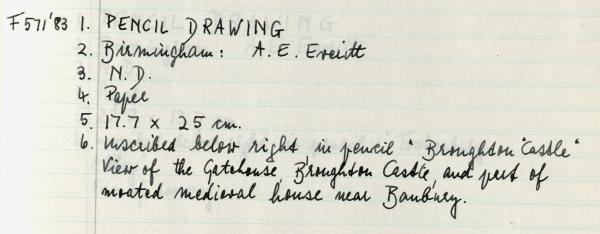 F571'83 1. PENCIL DRAWING
2. Birmingham: A. E. Everitt
3. N.D.
4. Paper
5. 17.7 x 25 cm.
6. Inscribed below right in pencil "Broughton Castle"
View of the Gatehouse, Broughton Castle, and part of
moated medieval house near Banbury.